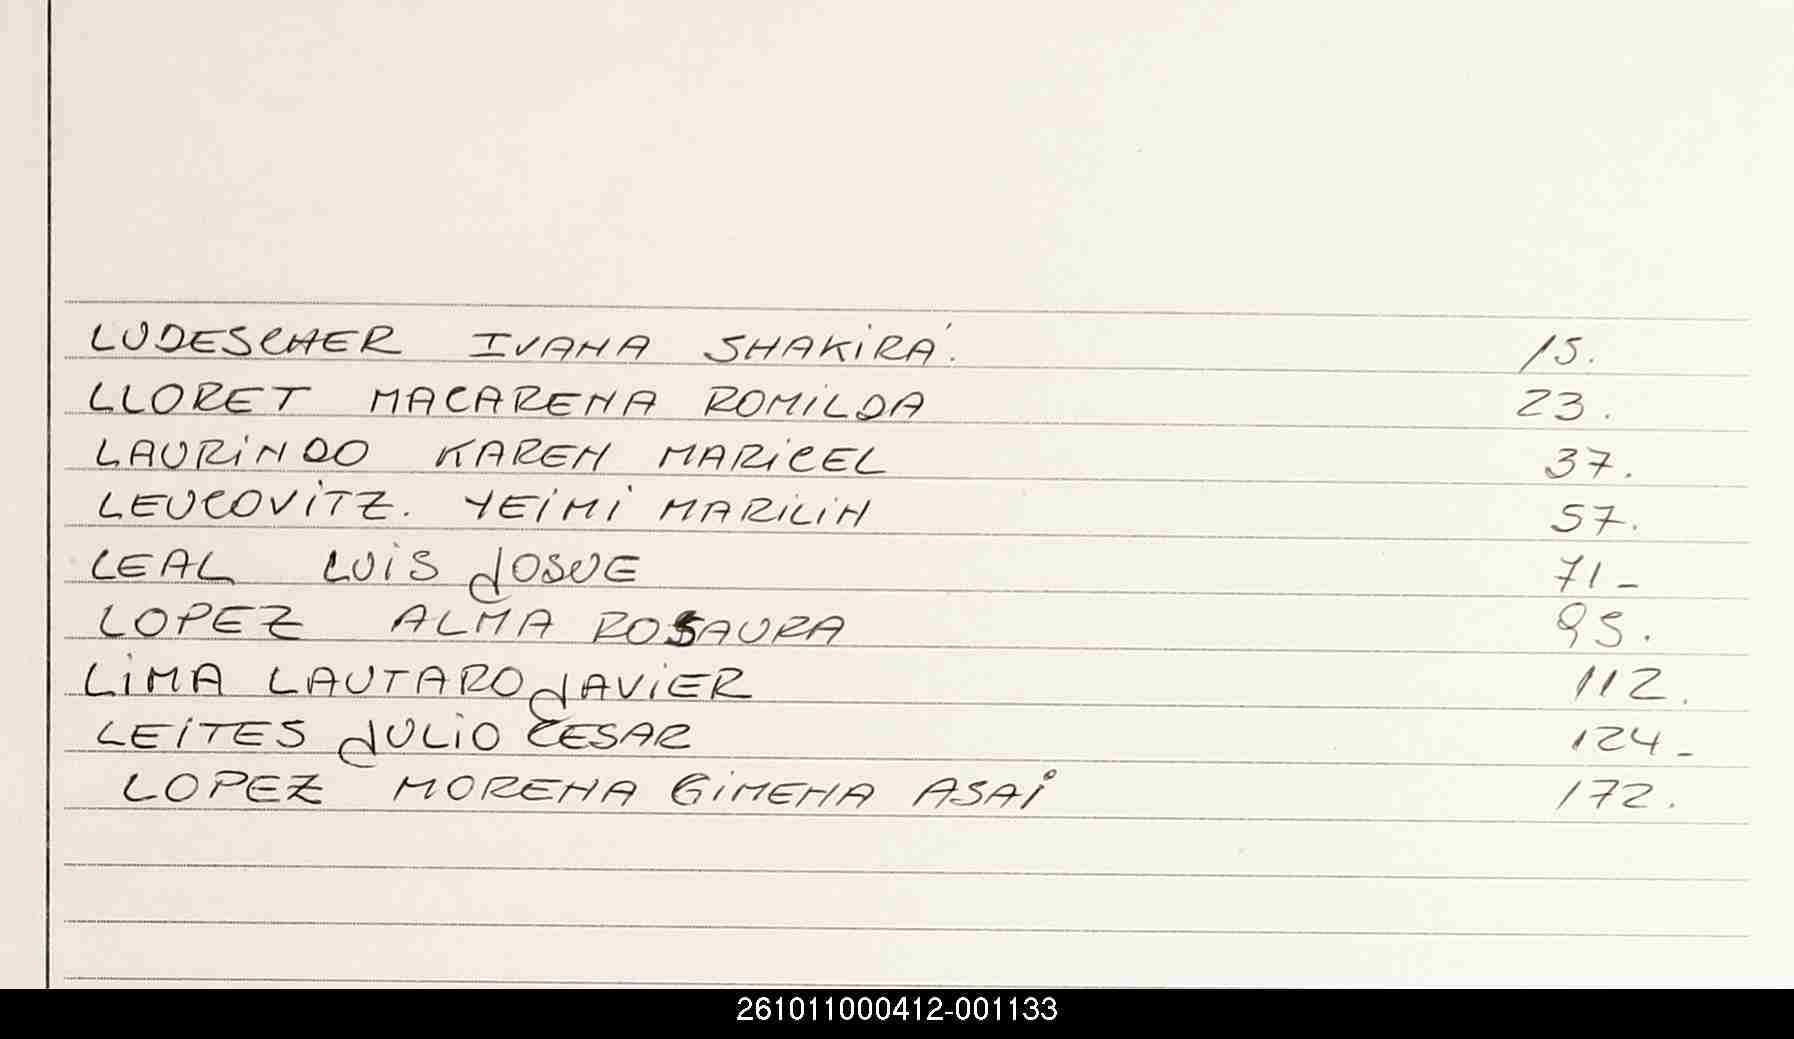 LUDESCHER IVANA SHAKIRA. 15.
LLORET MACARENA ROMILDA 23.
LAURiNDO KAREN MARiCEL 37.
LEUCOViTZ. YEiMi MARiLiN 57.
LEAL LUiS JOSUE 71-
LOPEZ ALMA ROSAURA 95.
LiMA LAUTARO JAViER 112.
LEiTES JULiO CESAR 124-
LOPEZ MORENA GiMENA ASAi 172.
261011000412-001133